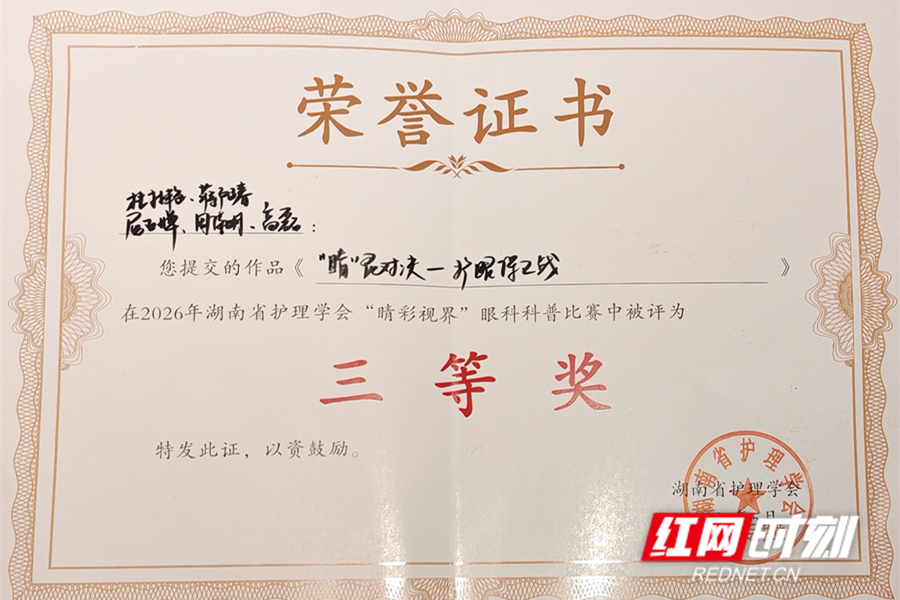 荣誉证书
屈 婵、周 明、高磊：
您提交的作品《“睛”民对决一护眼保卫战》
在2026年湖南省护理学会“睛彩视界”眼科科普比赛中被评为
三等奖
特发此证，以资鼓励。
湖南省护理学会
湖南省护理学会
红网时刻
REDNET.CN